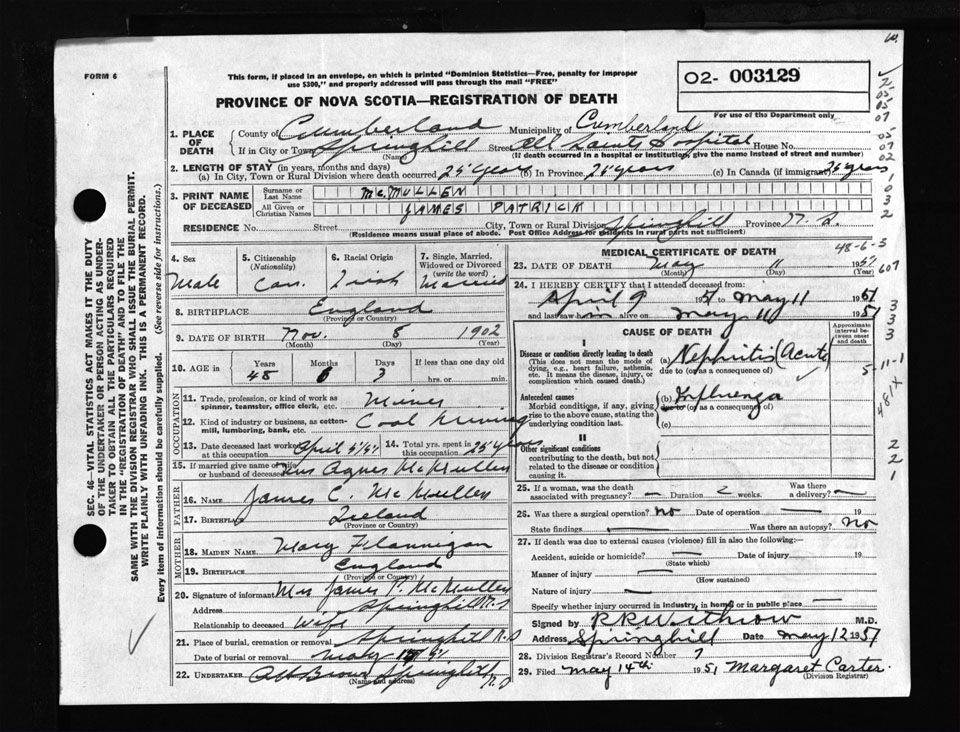 FORM 6
This form, if placed in an envelope, on which is printed "Dominion Statistics—Free, penalty for improper
use $300," and properly addressed will pass through the mail "FREE"
02- 003129
For use of the Department only
PROVINCE OF NOVA SCOTIA—REGISTRATION OF DEATH
1. PLACE OF DEATH
County of Cumberland Municipality of Cumberland
If in City or Town Springhill Street All Saints Hospital House No.
(Name) (If death occurred in a hospital or institution, give the name instead of street and number)
2. LENGTH OF STAY (in years, months and days)
(a) In City, Town or Rural Division where death occurred 25 years (b) In Province 25 years (c) In Canada (if immigrant) 25 years
3. PRINT NAME OF DECEASED
Surname or Last Name McMULLEN
All Given or Christian Names JAMES PATRICK
RESIDENCE No. Street City, Town or Rural Division Springhill Province N.S.
(Residence means usual place of abode. Post Office Address for residents in rural parts not sufficient)
4. Sex
Male
5. Citizenship (Nationality)
Can.
6. Racial Origin
Irish
7. Single, Married, Widowed or Divorced (write the word)
Married
8. BIRTHPLACE England
(Province or Country)
9. DATE OF BIRTH Nov. 8 1902
(Month) (Day) (Year)
10. AGE in
Years Months Days If less than one day old
48 6 3 hrs. or min.
OCCUPATION
11. Trade, profession, or kind of work as spinner, teamster, office clerk, etc. Miner
12. Kind of industry or business, as cotton-mill, lumbering, bank, etc. Coal Mining
13. Date deceased last worked at this occupation April 5/51
14. Total yrs. spent in this occupation 25 years
15. If married give name of wife or husband of deceased Mrs Agnes McMullen
FATHER
16. Name James C. McMullen
17. BIRTHPLACE Ireland
(Province or Country)
MOTHER
18. MAIDEN NAME Mary Flannigan
19. BIRTHPLACE England
(Province or Country)
20. Signature of informant Mrs James P. McMullen
Address Springhill N.S
Relationship to deceased Wife
21. Place of burial, cremation or removal Springhill N.S
Date of burial or removal May 51
22. UNDERTAKER Brown Springhill N.S
(Name and address)
MEDICAL CERTIFICATE OF DEATH
48-6-3
23. DATE OF DEATH May 11 1951
(Month) (Day) (Year)
607
24. I HEREBY CERTIFY that I attended deceased from:
April 9 1951 to May 11 1951
and last saw him alive on May 11 1951
CAUSE OF DEATH
Approximate interval between onset and death
I
Disease or condition directly leading to death
(This does not mean the mode of dying, e.g., heart failure, asthenia, etc. It means the disease, injury, or complication which caused death.)
(a) Nephritis (Acute)
due to (or as a consequence of)
Antecedent causes
Morbid conditions, if any, giving rise to the above cause, stating the underlying condition last.
(b) Influenza
due to (or as a consequence of)
(c)
II
Other significant conditions
contributing to the death, but not related to the disease or condition causing it.
5-11-1
481X
25. If a woman, was the death associated with pregnancy? — Duration 2 weeks. Was there a delivery? —
26. Was there a surgical operation? No Date of operation — 19
State findings — Was there an autopsy? No
27. If death was due to external causes (violence) fill in also the following:—
Accident, suicide or homicide? — Date of injury — 19
(State which)
Manner of injury —
(How sustained)
Nature of injury —
Specify whether injury occurred in industry, in home or in public place —
Signed by R R Withrow M.D.
Address Springhill Date May 12 1951
28. Division Registrar's Record Number 7
29. Filed May 14th 1951 Margaret Carter
(Division Registrar)
SEC. 46—VITAL STATISTICS ACT MAKES IT THE DUTY
OF THE UNDERTAKER OR PERSON ACTING AS UNDER-
TAKER TO OBTAIN ALL THE PARTICULARS REQUIRED
IN THE "REGISTRATION OF DEATH" AND TO FILE THE
SAME WITH THE DIVISION REGISTRAR WHO SHALL ISSUE THE BURIAL PERMIT.
WRITE PLAINLY WITH UNFADING INK. THIS IS A PERMANENT RECORD.
Every item of information should be carefully supplied. (See reverse side for instructions.)